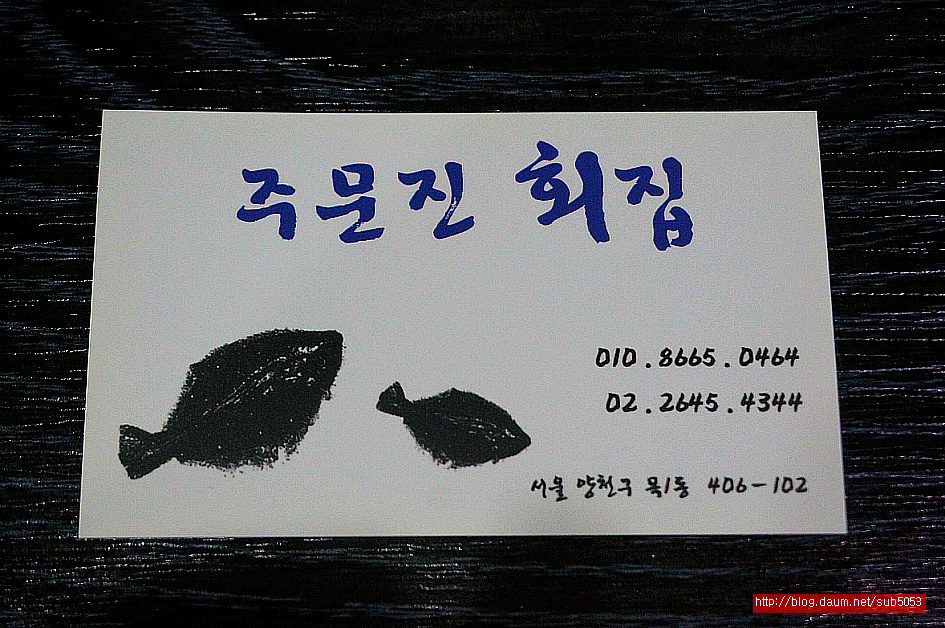 주문진 회집
010.8665.0464
02.2645.4344
서울 양천구 목1동 406-102
http://blog.daum.net/sub5053